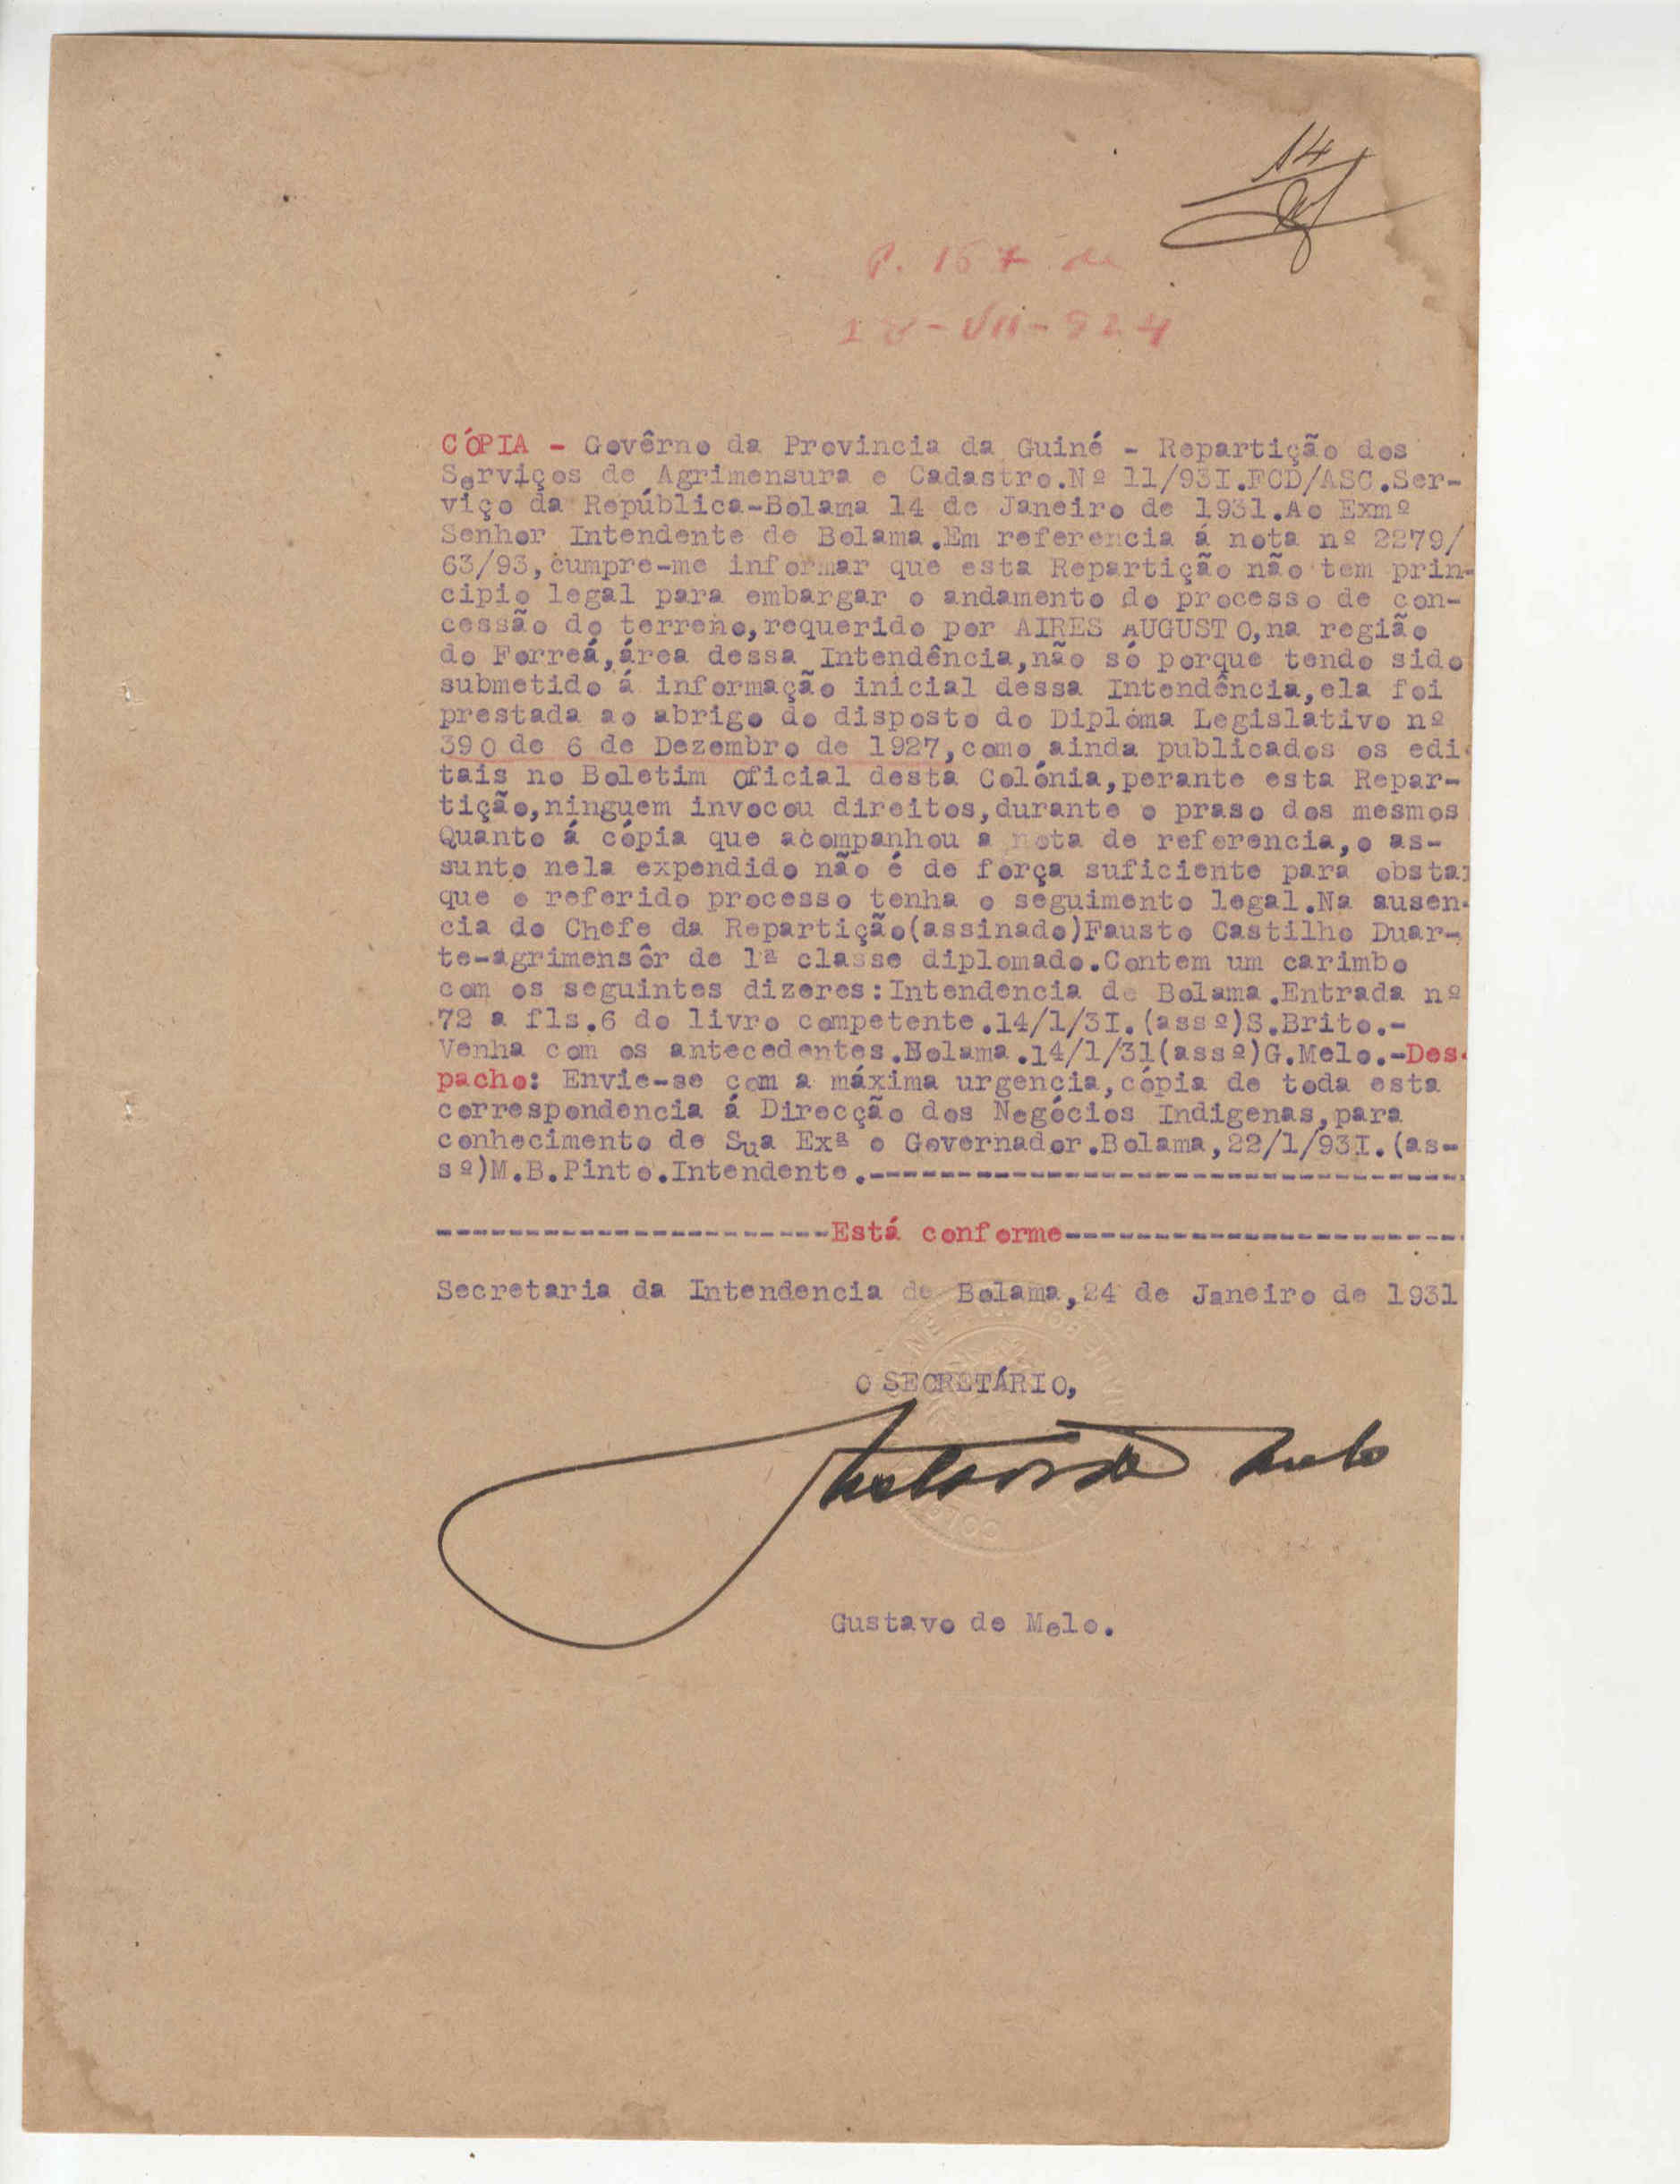 14
P. 157 de
-VII-924
CÓPIA - Govêrno da Provincia da Guiné - Repartição dos
Serviços de Agrimensura e Cadastro.Nº 11/93I.FCD/ASC.Ser-
viço da República-Bolama 14 de Janeiro de 1931.Ao Exmº
Senhor Intendente de Bolama.Em referencia á nota nº 2279/
63/93,cumpre-me informar que esta Repartição não tem prin-
cipio legal para embargar o andamento do processo de con-
cessão do terreno,requerido por AIRES AUGUSTO,na região
do Forreá,área dessa Intendência,não só porque tendo sido
submetido á informação inicial dessa Intendência,ela foi
prestada ao abrigo do disposto do Diplóma Legislativo nº
390 de 6 de Dezembro de 1927,como ainda publicados os edi-
tais no Boletim Oficial desta Colónia,perante esta Repar-
tição,ninguem invocou direitos,durante o praso dos mesmos
Quanto á cópia que acompanhou a nota de referencia,o as-
sunto nela expendido não é de força suficiente para obstar
que o referido processo tenha o seguimento legal.Na ausen-
cia do Chefe da Repartição(assinado)Fausto Castilho Duar-
te-agrimensôr de 1ª classe diplomado.Contem um carimbo
com os seguintes dizeres:Intendencia de Bolama.Entrada nº
72 a fls.6 do livro competente.14/1/3I.(assº)S.Brito.-
Venha com os antecedentes.Bolama.14/1/31(assº)G.Melo.-Des-
pacho: Envie-se com a máxima urgencia,cópia de toda esta
correspondencia á Direcção dos Negócios Indigenas,para
conhecimento de Sua Exª o Governador.Bolama,22/1/93I.(as-
sº)M.B.Pinto.Intendente.---------------------------------
----------------------Está conforme----------------------
Secretaria da Intendencia de Bolama,24 de Janeiro de 1931
O SECRETÁRIO,
Gustavo de Melo
Gustavo de Melo.